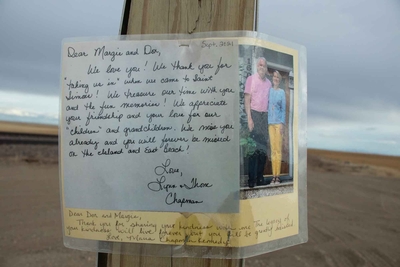 Sept. 2021
Dear Margie and Dor,
We love you! We thank you for
"taking us in" when we came to Saint
Simons! We treasure our time with you
and the fun memories! We appreciate
your friendship and your love for our
"children" and grandchildren. We miss you
already and you will forever be missed
on the island and East Beach!
Love,
Lynn + Thom
Chapman
Dear Dor and Margie,
Thank you for sharing your kindness with me. The legacy of
your kindness will live forever but you will be greatly missed.
Love, Chapman Kennedy